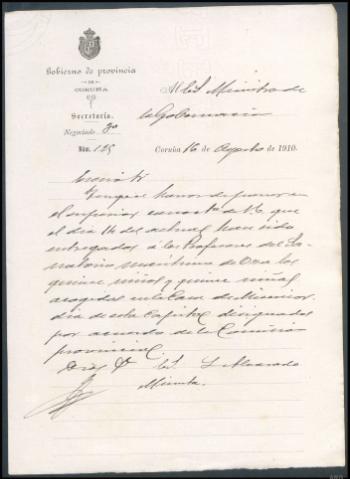 Gobierno de provincia
DE
CORUÑA
Secretaría.
Negociado 3º
Núm. 125
Al Ministro de
la Gobernación
Coruña 16 de Agosto de 1910.
Excmo Sr
Tengo el honor de poner en
el superior conocimto de V.E. que
el dia 14 del actual han sido
entregados á los Profesores del Sa-
natorio maritimo de Oza los
quince niños y quince niñas
acogidos en la Casa de Misericor-
dia de esta Capital designados
por acuerdo de la Comision
provincial.
Dios
Minuta.